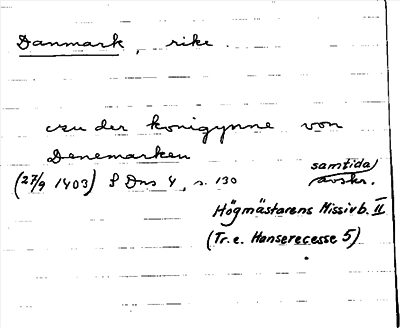 Danmark, rike.
czu der konigynne von
Denemarken
samtida
(27/9 1403) S Dns 4, s. 130 avskr.
Högmästarens Missivb. II
(Tr. e. Hanserecesse 5)